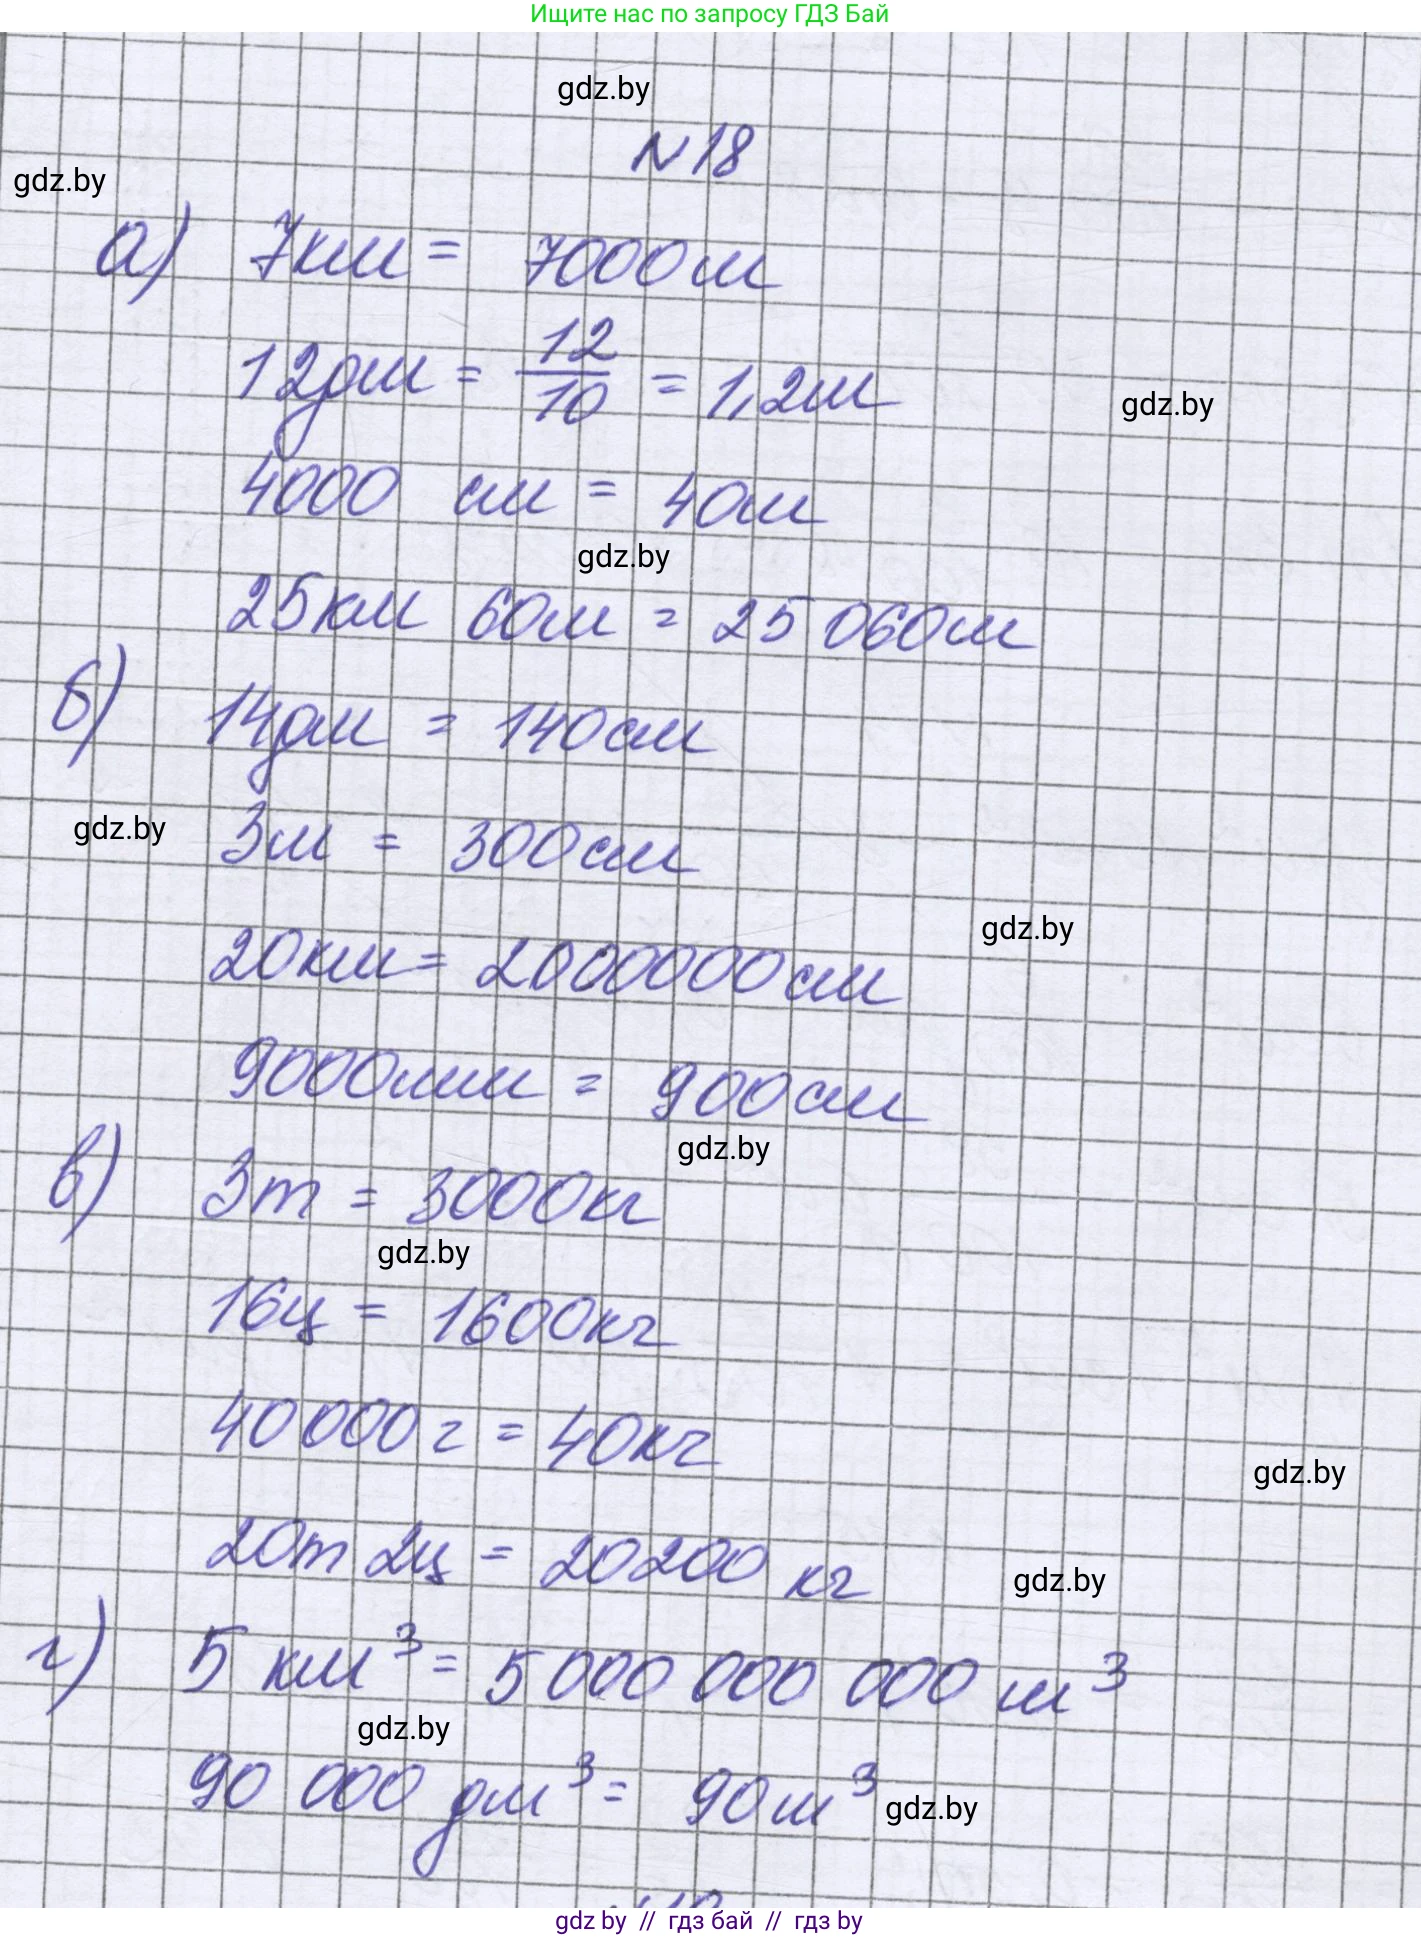 Ищите нас по запросу ГДЗ Бай
gdz.by
N 18
gdz.by
а) 7км = 7000м
12дм = 12/10 = 1,2м
gdz.by
4000 см = 40м
gdz.by
25км 60м = 25 060м
б) 14дм = 140см
gdz.by
3м = 300см
gdz.by
20км = 2000000см
9000мм = 900см
gdz.by
в) 3т = 3000кг
gdz.by
16ц = 1600кг
40 000 г = 40кг
gdz.by
20т 2ц = 20200 кг
gdz.by
г) 5 км³ = 5 000 000 000 м³
gdz.by
90 000 дм³ = 90м³
gdz.by
gdz.by // гдз бай // гдз by